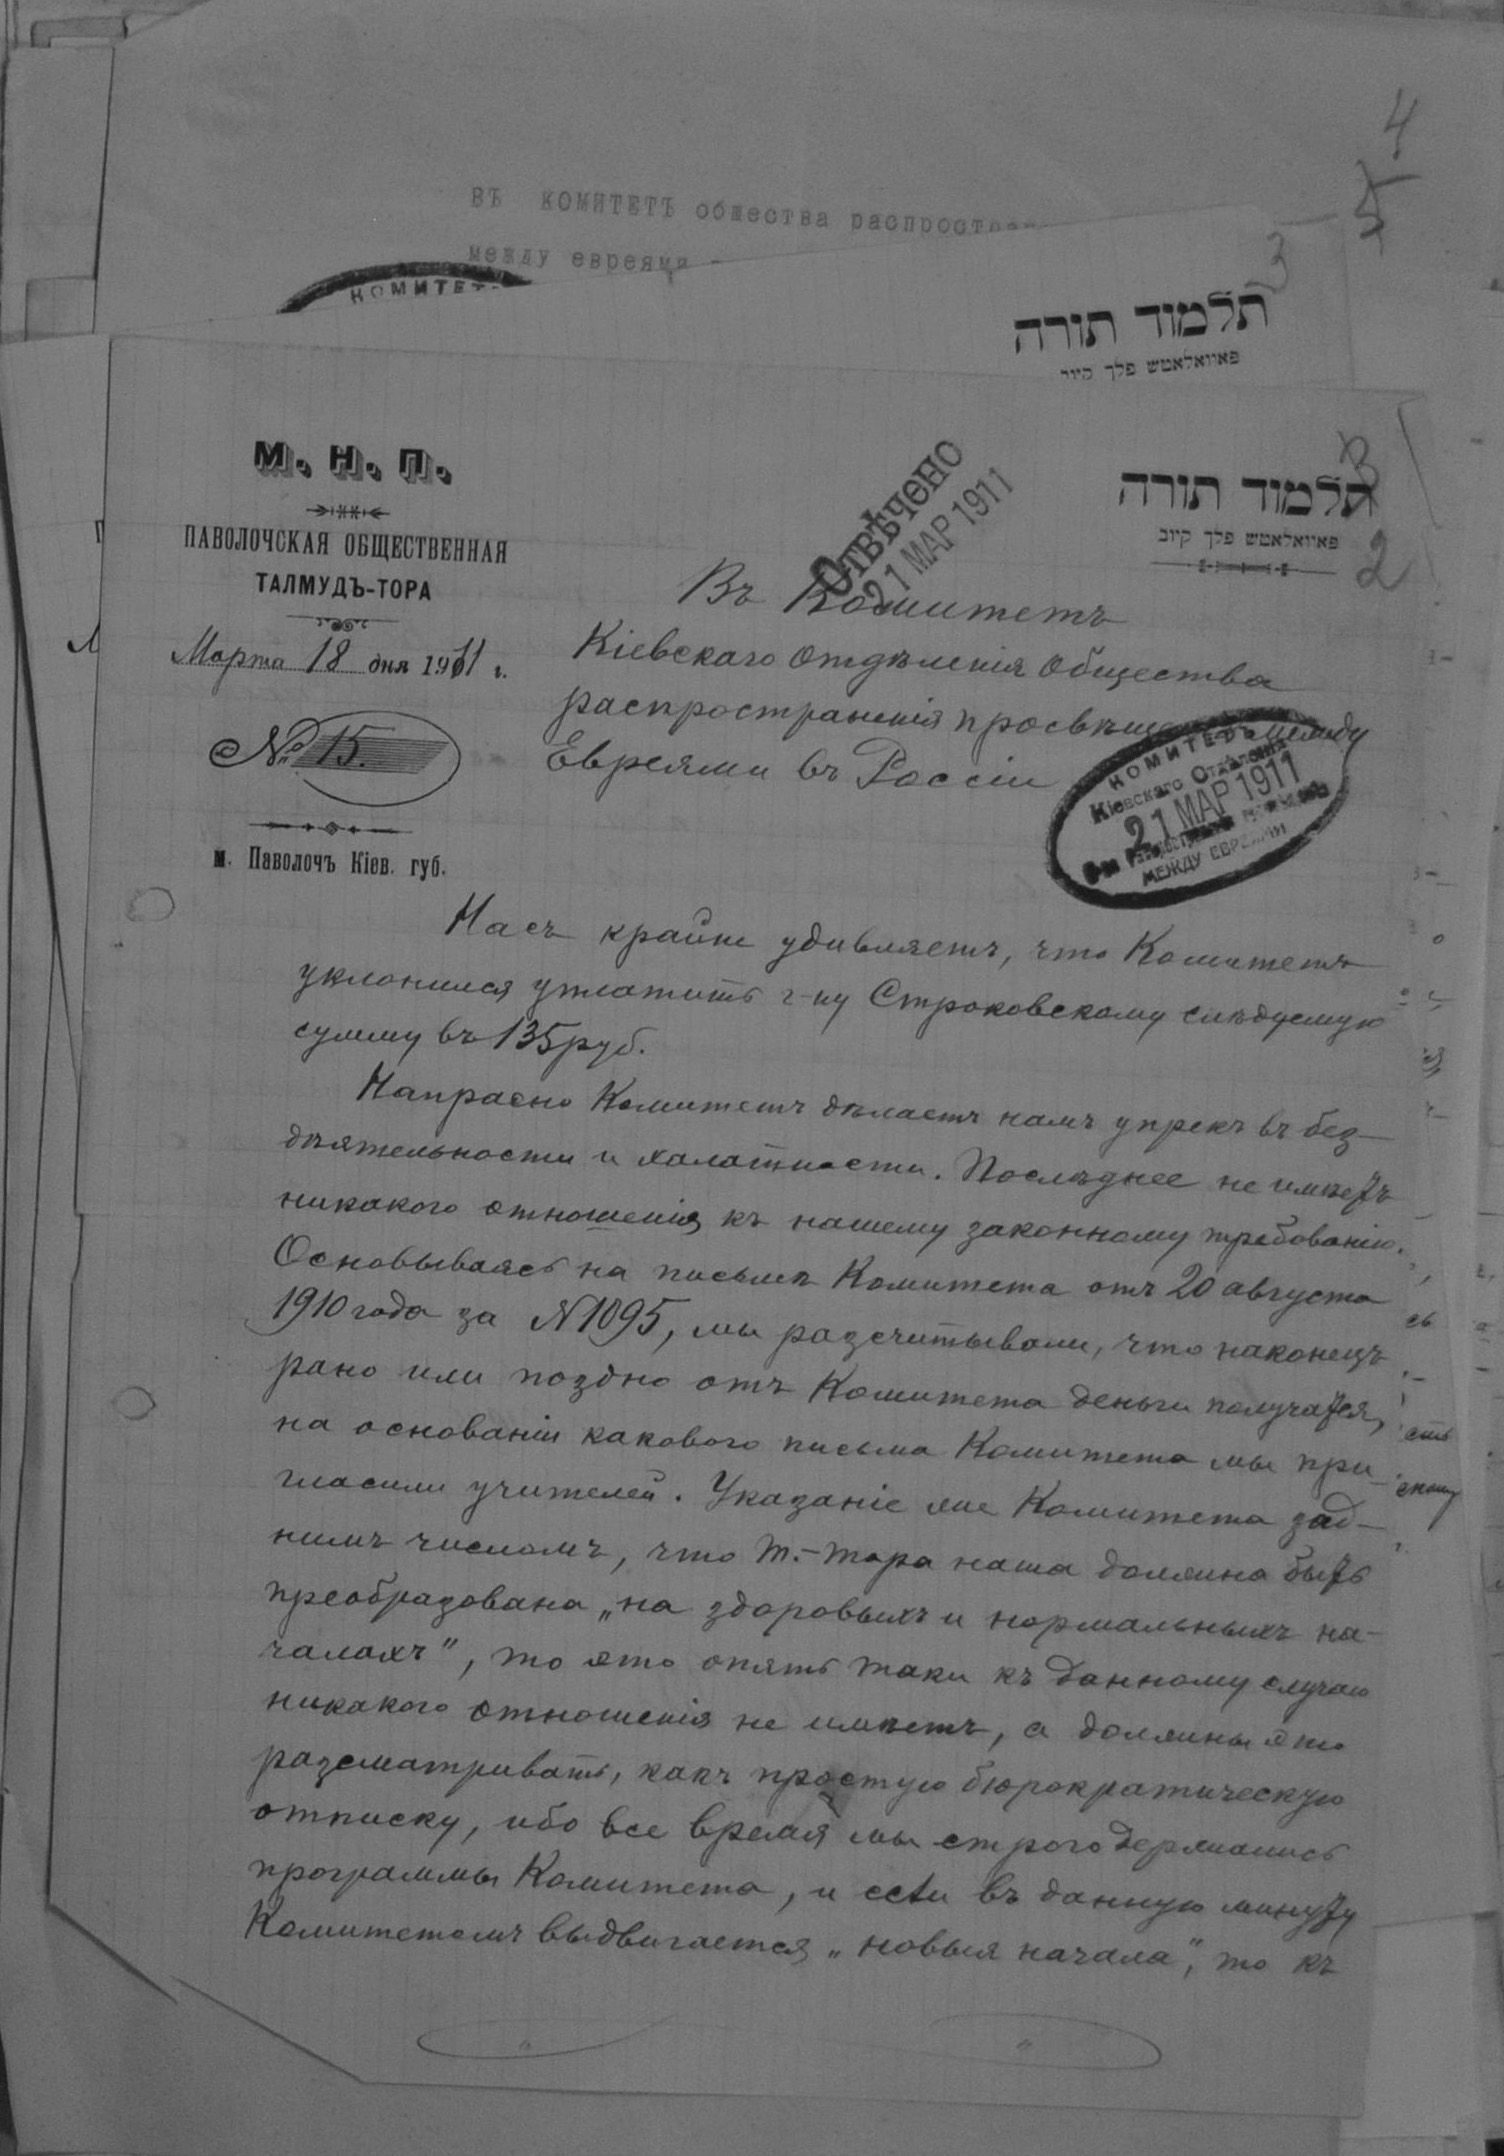 4
5
ВЪ КОМИТЕТЪ общества распростран
между евреями -
КОМИТЕТ
3
תלמוד תורה
פאוואלאטש פלך קיוב
М. Н. П.
ПАВОЛОЧСКАЯ ОБЩЕСТВЕННАЯ
ТАЛМУДЪ-ТОРА
Марта 18 дня 1911 г.
№ 15.
м. Паволочъ Кіев. губ.
Отвѣчено
21 МАР 1911
3
תלמוד תורה
פאוואלאטש פלך קיוב
2
Въ Комитетъ
Кіевскаго Отдѣленія Общества
распространенія просвѣще между
Евреями въ Россіи
КОМИТЕТЪ
Кіевскаго Отдѣленія
21 МАР 1911
О-ва распространенія
МЕЖДУ ЕВРЕЯМИ
Насъ крайне удивляетъ, что Комитетъ
уклонился уплатить г-ну Строковскому слѣдуемую
сумму въ 135 руб.
Напрасно Комитетъ дѣлаетъ намъ упрекъ въ без-
дѣятельности и халатности. Послѣднее не имѣетъ
никакого отношенія къ нашему законному требованію.
Основываясь на письмѣ Комитета отъ 20 августа
1910 года за N 1095, мы разсчитывали, что наконецъ
рано или поздно отъ Комитета деньги получатся,
на основаніи какового письма Комитета мы при-
гласили учителей. Указаніе же Комитета зад-
нимъ числомъ, что Т.-Тора наша должна быть
преобразована „на здоровыхъ и нормальныхъ на-
чалахъ", то это опять таки къ данному случаю
никакого отношенія не имѣетъ, а должны это
разсматривать, какъ простую бюрократическую
отписку, ибо все время мы строго держались
программы Комитета, и если въ данную минуту
Комитетомъ выдвигается „новыя начала", то къ